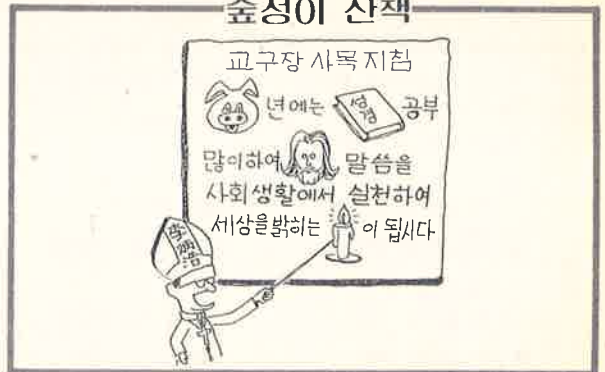 숲정이 산책
교구장 사목 지침
년에는 성경 공부
많이하여 말씀을
사회생활에서 실천하여
세상을밝히는 이 됩시다
李炳浩